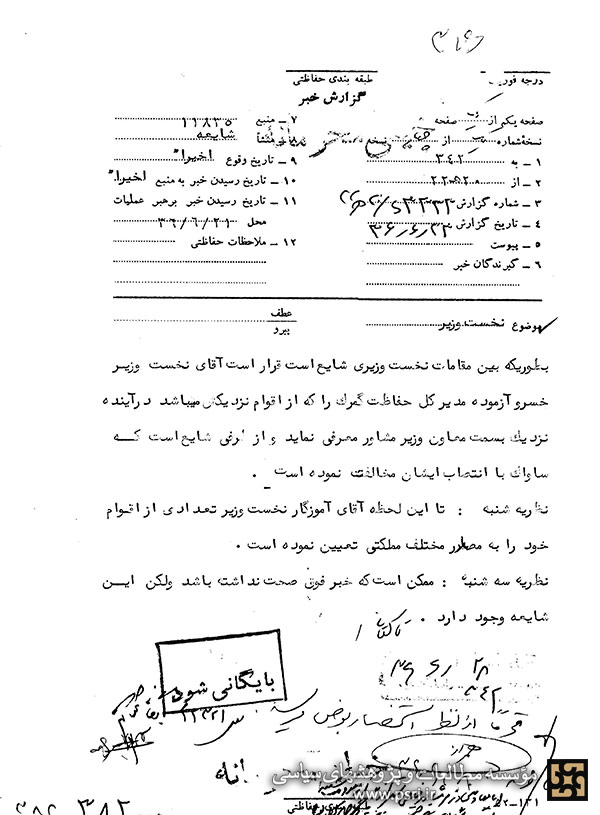 درجه فوریت
طبقه بندی حفاظتی
گزارش خبر
صفحه یکم از یک صفحه
نسخه شماره از نسخه
۱ - به ۳۴۲
۲ - از ۲۰ه۲۲
۳ - شماره گزارش
۴ - تاریخ گزارش ۳۶٫۶٫۲۲
۵ - پیوست
۶ - گیرندگان خبر
۷ - منبع ۱۱۸۳۵
۸ - منشأ شایعه
۹ - تاریخ وقوع اخیرا"
۱۰ - تاریخ رسیدن خبر به منبع اخیرا"
۱۱ - تاریخ رسیدن خبر برهبر عملیات
محل ۳۶/۶/۲۱
۱۲ - ملاحظات حفاظتی
موضوع نخست وزیر
عطف
پیرو
بطوریکه بین مقامات نخست وزیری شایع است قرار است آقای نخست وزیر
خسرو آزموده مدیر کل حفاظت گمرک را که از اقوام نزدیکش میباشد درآینده
نزدیک بسمت معاون وزیر مشاور معرفی نماید و از طرفی شایع است که
ساواک با انتصاب ایشان مخالفت نموده است .
نظریه شنبه : تا این لحظه آقای آموزگار نخست وزیر تعدادی از اقوام
خود را به مصادر مختلف مملکتی تعیین نموده است .
نظریه سه شنبه : ممکن است که خبر فوق صحت نداشته باشد ولکن این
شایعه وجود دارد .
بایگانی شود
۲۸ ۶ ۳۶
۳۴۲
قبلاً از لحاظ استحضار بعرض رسید
مؤسسه مطالعات و پژوهشهای سیاسی
www.psri.ir
طبقه بندی حفاظتی
۳۸۲